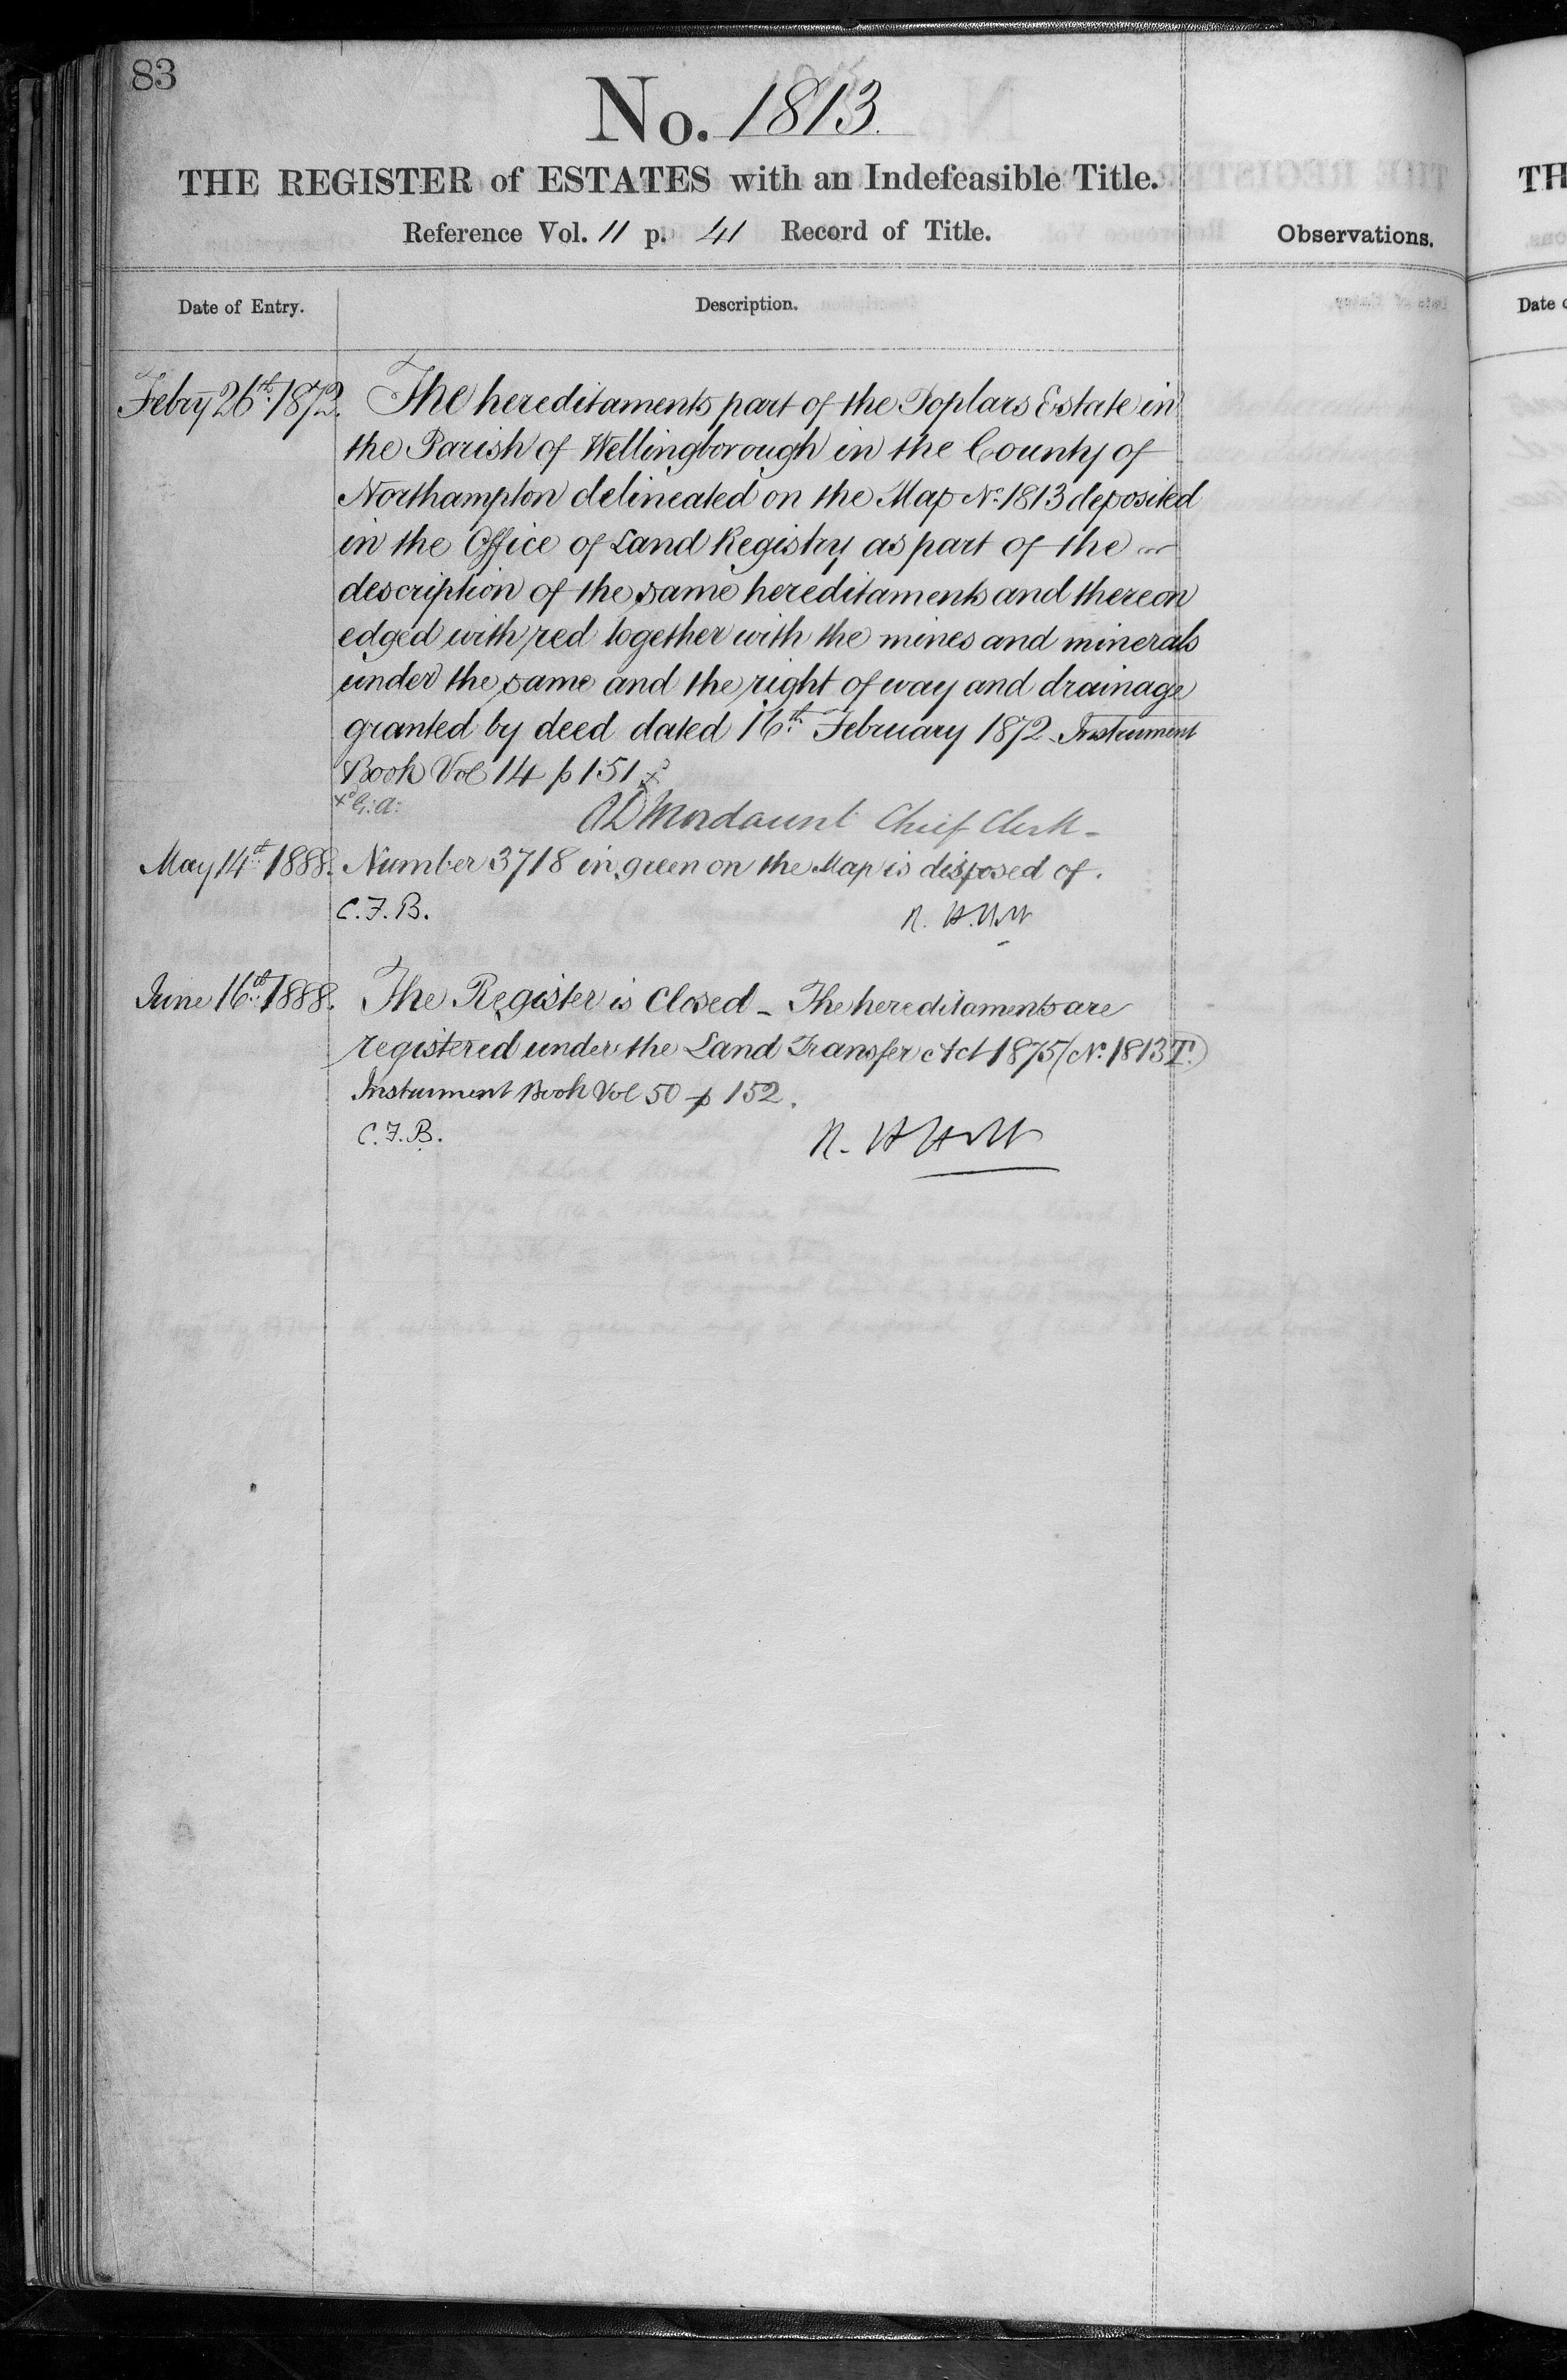 83
No. 1813.
THE REGISTER of ESTATES with an Indefeasible Title.
Reference Vol. 11 p. 41 Record of Title.
Observations.
Date of Entry.
Description.
Febry 26th 1872. The hereditaments part of the Poplars Estate in
the Parish of Wellingborough in the County of
Northampton delineated on the Map No. 1813 deposited
in the Office of Land Registry as part of the
description of the same hereditaments and thereon
edged with red together with the mines and minerals
under the same and the right of way and drainage
granted by deed dated 16th February 1872 - Instrument
Book Vol 14 p 151
Mordaunt Chief Clerk -
May 14th 1888. Number 3718 in green on the Map is disposed of.
C.F.B. R. H. Holt
June 16th 1888. The Register is Closed - The hereditaments are
registered under the Land Transfer Act 1875 (No. 1813 T.)
Instrument Book Vol 50 p 152.
C.F.B. R. H Holt
TH
Date